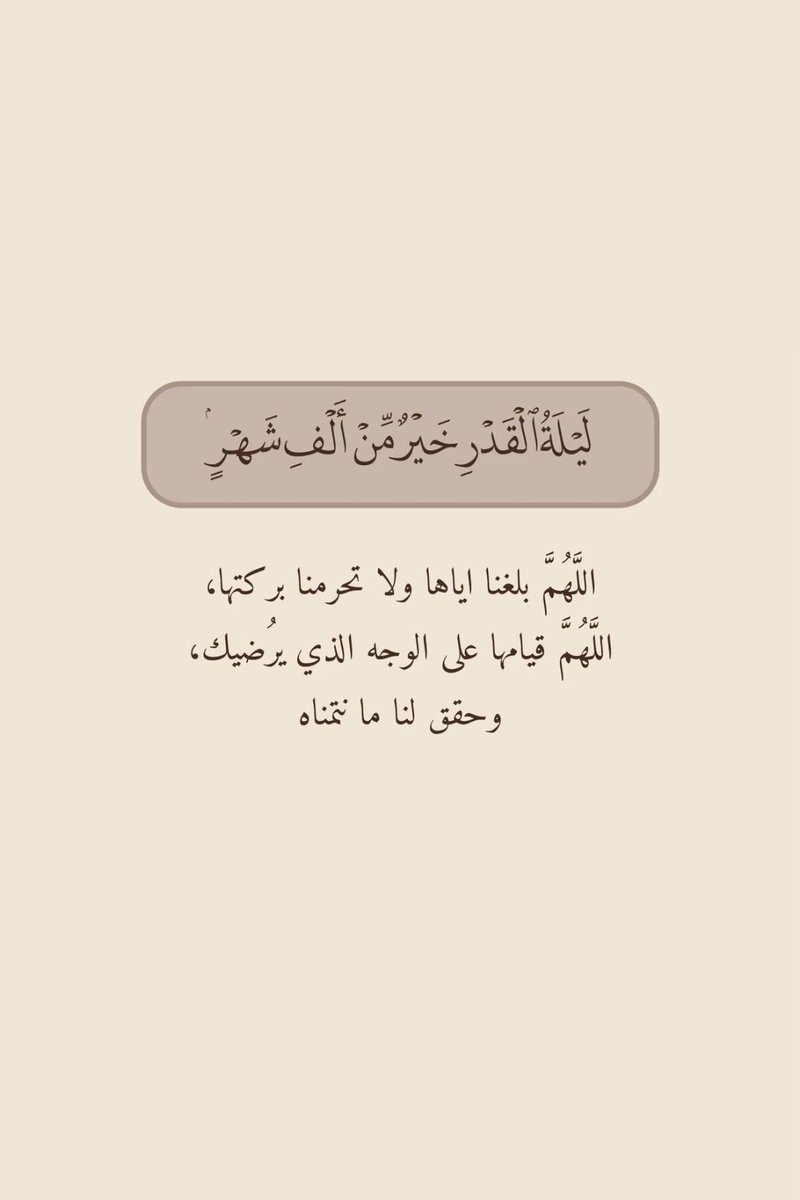 لَيْلَةُ ٱلْقَدْرِ خَيْرٌ مِّنْ أَلْفِ شَهْرٍ
اللَّهُمَّ بلغنا اياها ولا تحرمنا بركتها،
اللَّهُمَّ قيامها على الوجه الذي يرُضيك،
وحقق لنا ما نتمناه